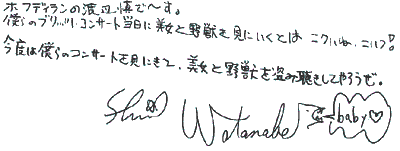 ホフディランの渡辺慎で〜す。
僕らのブリッツ・コンサート当日に美女と野獣を見にいくとは ニクいね、ニクイ!
今度は僕らのコンサートを見にきて、美女と野獣を盗み聴きしてやろうぜ。
Shin Watanabe baby♡